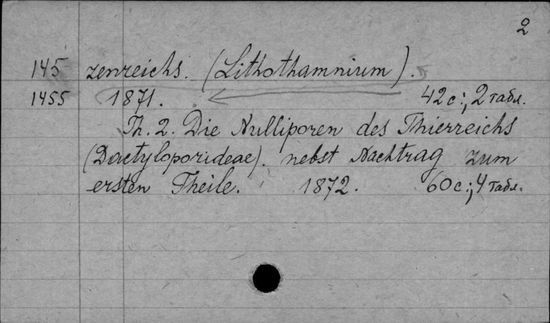 2
145 zenreichs. (Lithothamnium).
1455 1871. 42 с.; 2 табл.
Th. 2. Die Nulliporen des Thierreichs
(Dactyloporideae). nebst Nachtrag zum
ersten Theile. 1872. 60 с.; 4 табл.